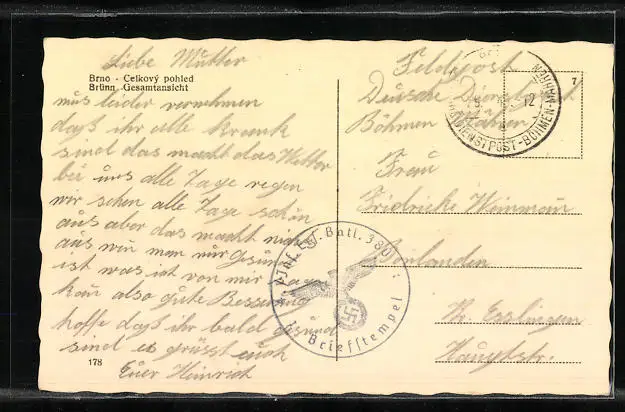 Liebe Mutter
Brno - Celkový pohled
Brünn - Gesamtansicht
mus leider vernehmen
daß ihr alle Krank
sind das macht das Wetter
bei uns alle Tage regen
wir sehen alle Tage schin
aus aber das macht nich
aus wen man nur Gesund
ist was ich von mir sagen
kan also gute Besserung
hoffe daß ihr bald gesund
sind es grüsst euch
Euer Heinrich
178
Feldpost
Deutsche Dienstpost
Böhmen Mähren
7
12
DIENSTPOST-BÖHMEN-MÄHREN
Frau
Fridricke Weinmann
Bonlanden
Kr. Esslingen
Hauptstr.
Batl. 380
Briefstempel